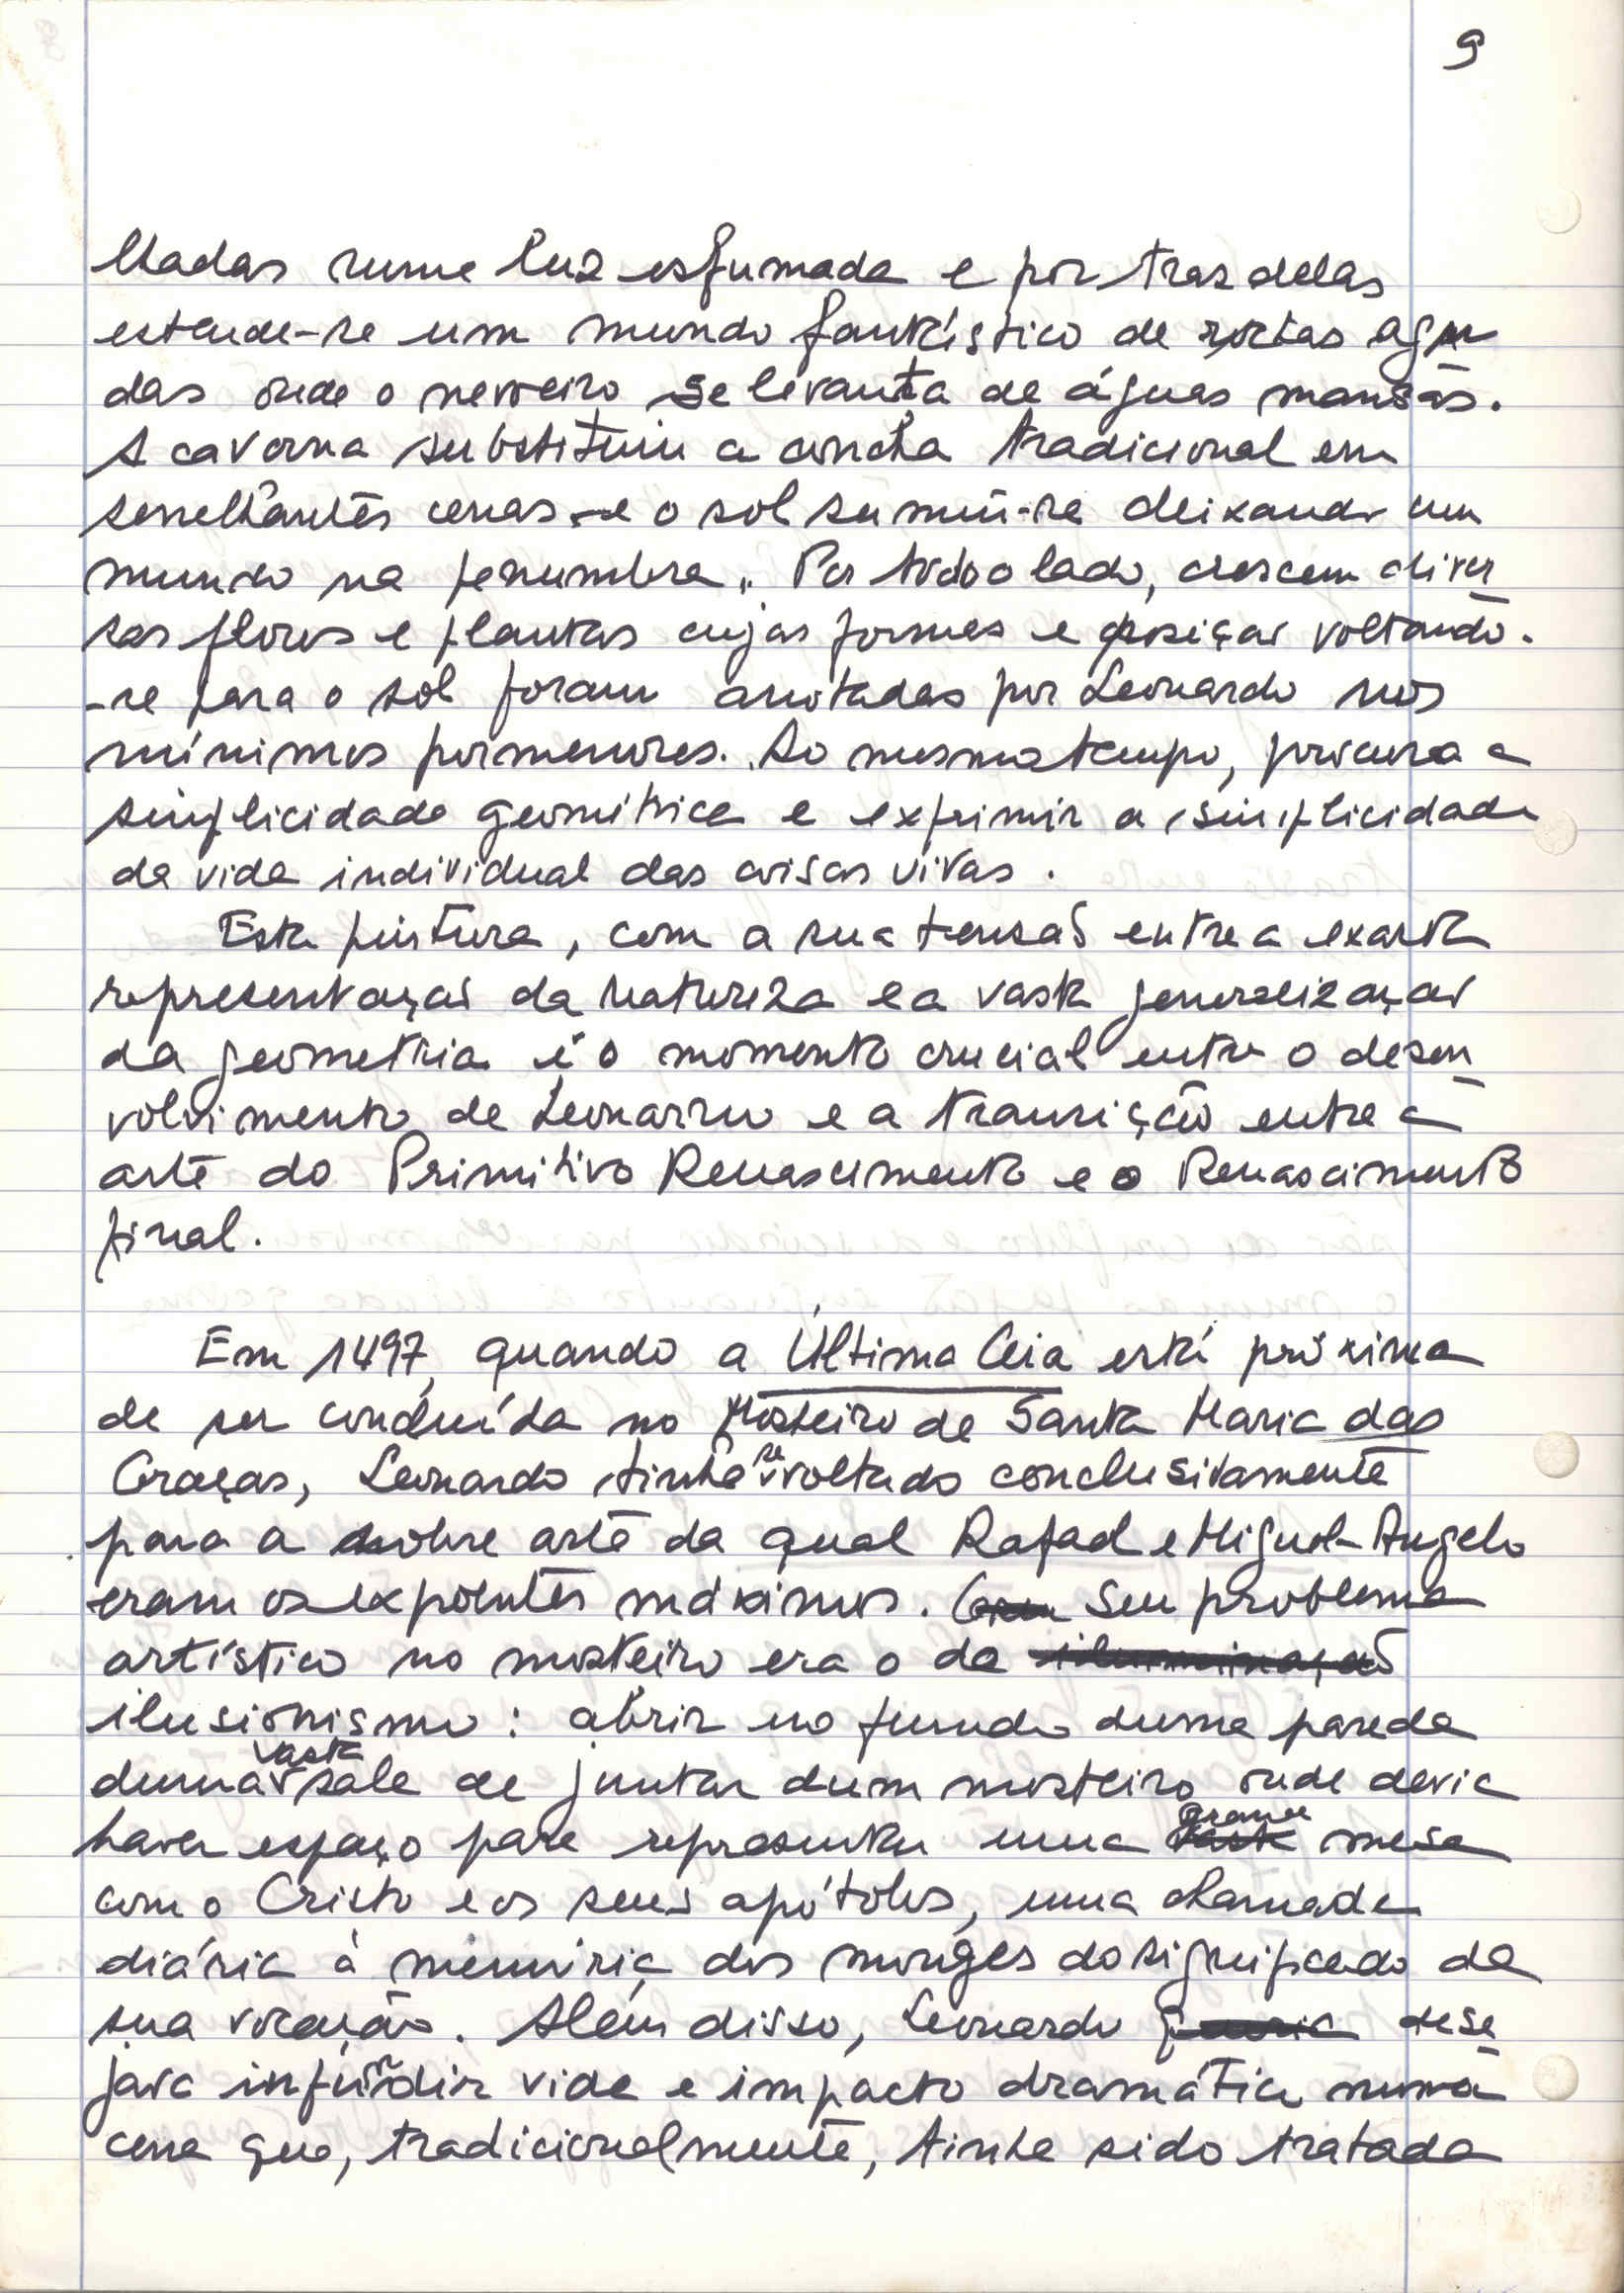 9
lhadas numa luz esfumada e por tras delas
estende-se um mundo fantástico de rochas agu
das onde o nevoeiro se levanta de águas mansas.
A caverna substituiu a concha tradicional em
semelhantes cenas e o sol sumiu-se deixando um
mundo na penumbra. Por todo o lado, crescem diver
sas flores e plantas cujas formas e posição voltando-
-se para o sol foram anotadas por Leonardo nos
mínimos pormenores. Ao mesmo tempo, procura a
simplicidade geométrica e exprimir a simplicidade
da vida individual das coisas vivas.
Esta pintura, com a sua tensão entre a exacta
representação da natureza e a vasta generalização
da geometria é o momento crucial entre o desen
volvimento de Leonardo e a transição entre a
arte do Primitivo Renascimento e o Renascimento
final.
Em 1497, quando a Última Ceia está próxima
de ser concluída no Mosteiro de Santa Maria das
Graças, Leonardo tinha se voltado conclusivamente
para a nobre arte da qual Rafael e Miguel-Angelo
eram os expoentes máximos. Seu problema
artístico no mosteiro era o de iluminação
ilusionismo: abrir no fundo duma parede
duma vasta sala de jantar dum mosteiro onde devia
haver espaço para representar uma vasta grande mesa
com o Cristo e os seus apóstolos, uma chamada
diária à memória dos monges do significado da
sua vocação. Além disso, Leonardo queria dese
java infundir vida e impacto dramático numa
cena que, tradicionalmente, tinha sido tratada